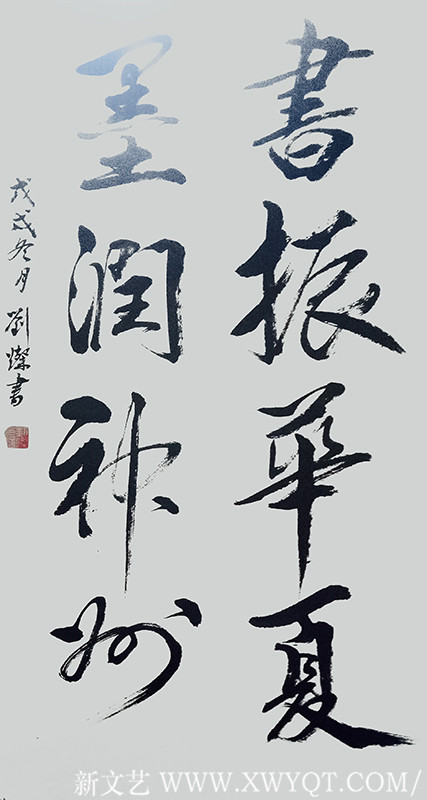 書振華夏
墨潤神州
戊戌冬月劉燦書
新文艺 WWW.XWYQT.COM/